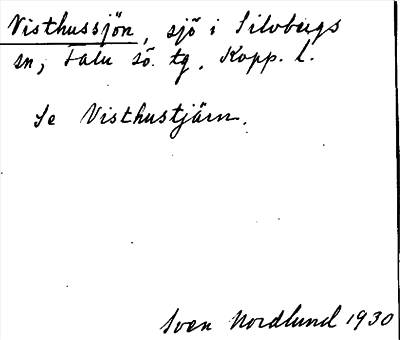 Visthussjön, sjö i Silvbergs
sn, Falu sö. tg. Kopp. l.
Se Visthustjärn.
Sven Nordlund 1930